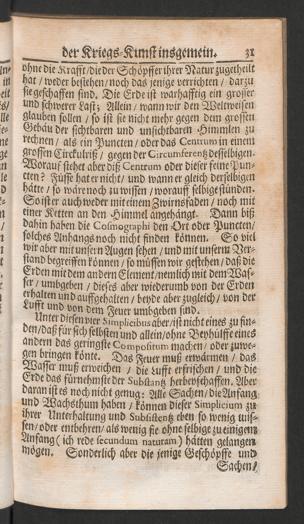 der Kriegs-Kunst insgemein. 31
ohne die Krafft/ die der Schöpffer ihrer Natur zugetheilt
hat / weder bestehen/ noch das jenige verrichten / darzu
sie geschaffen sind. Die Erde ist warhafftig ein grosser
und schwerer Last; Allein / wann wir den Weltweisen
glauben sollen / so ist sie nicht mehr gegen dem grossen
Gebäu der sichtbaren und unsichtbaren Himmlen zu
rechnen / als ein Puncten / oder das Centrum in einem
grossen Circkulriß / gegen der Circumferentz desselbigen.
Worauf stehet aber diß Centrum oder dieser feine Puncten?
Füsse hat er nicht / und wann er gleich derselbigen
hätte / so wäre noch zu wissen / worauff selbige stünden.
So ist er auch weder mit einem Zwirnsfaden / noch mit
einer Ketten an den Himmel angehängt. Dann biß
dahin haben die Cosmographi den Ort oder Puncten/
solches Anhangs noch nicht finden können. So viel
wir aber mit unsern Augen sehen / und mit unserm Verstand
begreiffen können / so müssen wir gestehen / daß die
Erden mit dem andern Element / nemlich mit dem Wasser
/ umbgeben / dieses aber wiederumb von der Erden
erhalten und auffgehalten / beyde aber zugleich / von der
Lufft und von dem Feuer umbgeben sind.
Unter diesen vier Simplicibus aber / ist nicht eines zu finden
/ daß für sich selbsten und allein / ohne Beyhülff eines
andern das geringste Compositum machen / oder zuwegen
bringen könte. Das Feuer muß erwärmen / das
Wasser muß erweichen / die Lufft erfrischen / und die
Erde das fürnehmste der Substantz herbeyschaffen. Aber
daran ist es noch nicht genug: Alle Sachen / die Anfang
und Wachsthum haben / können dieser Simplicium zu
ihrer Unterhaltung und Subsistentz eben so wenig missen
/ oder entbehren / als wenig sie ohne selbige zu einigem
Anfang ( ich rede secundum naturam ) hätten gelangen
mögen. Sonderlich aber die jenige Geschöpffe und
Sachen/